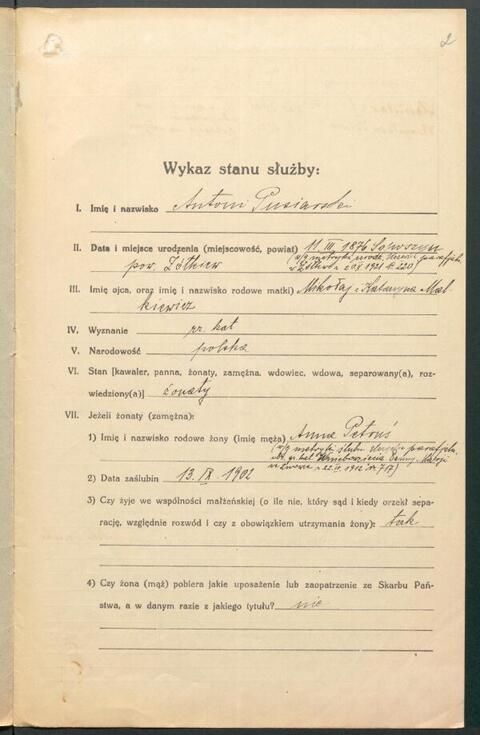 2
Wykaz stanu służby:
I. Imię i nazwisko Antoni Pusiarski
II. Data i miejsce urodzenia (miejscowość, powiat) 11 III. 1876
pow. Żółkiew
(w/g metryki urodz. parafjaln.
III. Imię ojca, oraz imię i nazwisko rodowe matki) Mikołaj i Katarzyna Mał-
kiewicz
IV. Wyznanie rz. kat
V. Narodowość polska
VI. Stan [kawaler, panna, żonaty, zamężna. wdowiec, wdowa, separowany(a), roz-
wiedziony(a)] żonaty
VII. Jeżeli żonaty (zamężna):
1) Imię i nazwisko rodowe żony (imię męża) Anna Petruś
(w/g metryki ślubu
2) Data zaślubin 13. IX 1902
3) Czy żyje we wspólności małżeńskiej (o ile nie, który sąd i kiedy orzekł sepa-
rację, względnie rozwód i czy z obowiązkiem utrzymania żony): tak
4) Czy żona (mąż) pobiera jakie uposażenie lub zaopatrzenie ze Skarbu Pań-
stwa, a w danym razie z jakiego tytułu? nie